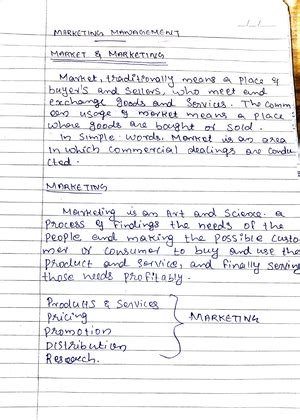 MARKETING MANAGEMENT
MARKET & MARKETING
Market, traditionally means a place of
buyer's and sellers, who meet and
exchange goods and services. The comm
on usage of market means a place
where goods are bought or sold.
In simple words. Market is an area
in which commercial dealings are condu
cted.
MARKETING
Marketing is an Art and Science. a
process of findings the needs of the
people and making the possible custo-
mer or consumer to buy and use the
product and services, and finally serving
those needs profitably.
Products & Services
pricing
promotion
Distribution
Research.
MARKETING